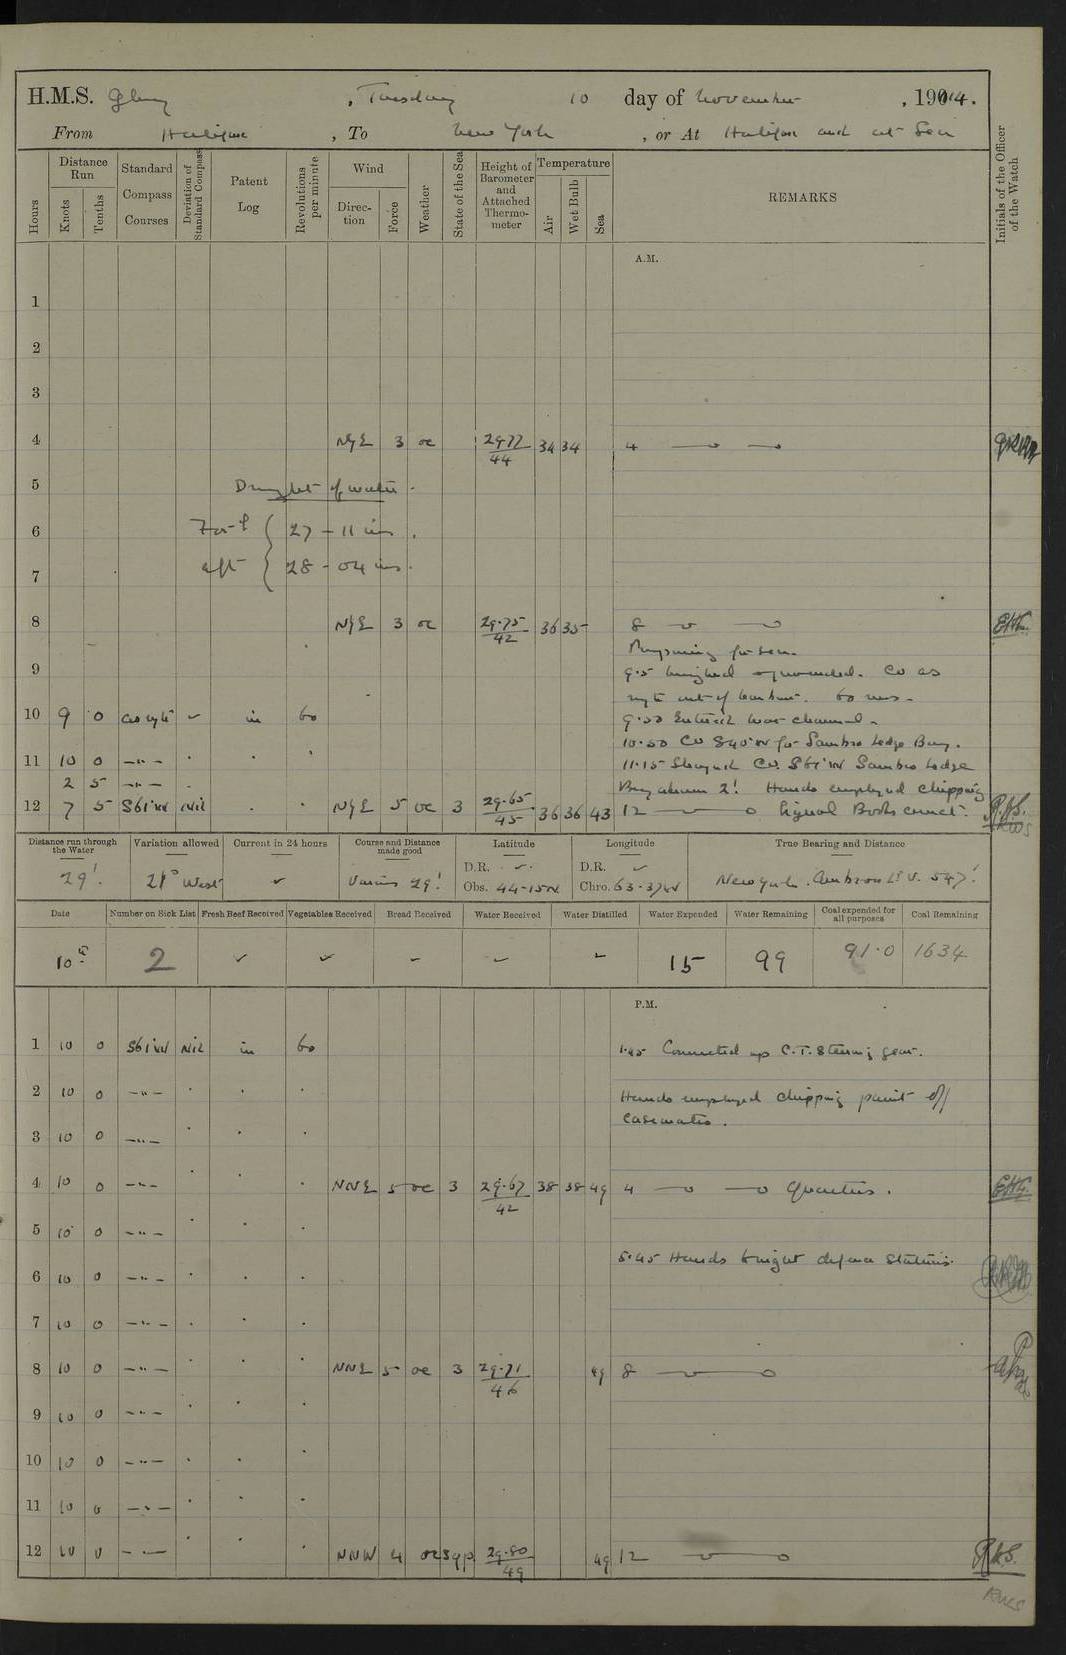 H.M.S. Glory , Tuesday 10 day of November , 1914.
From Halifax , To New York , or At Halifax and at Sea
Hours
Distance Run
Knots
Tenths
Standard Compass Courses
Deviation of Standard Compass
Patent Log
Revolutions per minute
Wind
Direction
Force
Weather
State of the Sea
Height of Barometer and Attached Thermometer
Temperature
Air
Wet Bulb
Sea
REMARKS
Initials of the Officer of the Watch
A.M.
1
2
3
4 NyE 3 oc 29.77 44 34 34 4
5 Draught of water.
6 For'd 27 - 11 ins.
7 aft 28 - 04 ins.
8 NyE 3 oc 29.75 42 36 35 8
for sea.
9 9.5 Co as
out of harbour. 60 revs.
10 9 0 as req in 60 9. Entered war channel.
10.50 Co S40°W for Sambro Ledge Buoy.
11 10 0 -"- 11.15 Co. S61°W Sambro Ledge
2 5 -"- Buoy abeam 2'. Hands employed chipping
12 7 5 S61°W Nil NyE 5 oc 3 29.65 45 36 36 43 12 Signal Books correct.
Distance run through the Water
29'
Variation allowed
21° West
Current in 24 hours
Course and Distance made good
Various 29'
Latitude
D.R.
Obs. 44-15N
Longitude
D.R.
Chro. 63-37W
True Bearing and Distance
New York. Ambrose Lt V. 547'
Date Number on Sick List Fresh Beef Received Vegetables Received Bread Received Water Received Water Distilled Water Expended Water Remaining Coal expended for all purposes Coal Remaining
10th 2 15 99 91.0 1634
P.M.
1 10 0 S61W Nil in 60 1.45 Connected up C.T. Steering gear.
2 10 0 -"- Hands employed chipping paint off
casemates.
3 10 0 -"-
4 10 0 -"- NNE 5 oc 3 29.67 42 38 38 49 4 Quarters.
5 10 0 -"-
5.45 Hands to night defence stations.
6 10 0 -"-
7 10 0 -"-
8 10 0 -"- NNE 5 oc 3 29.71 46 49 8
9 10 0 -"-
10 10 0 -"-
11 10 0 -"-
12 10 0 - - NNW 4 29.80 49 49 12